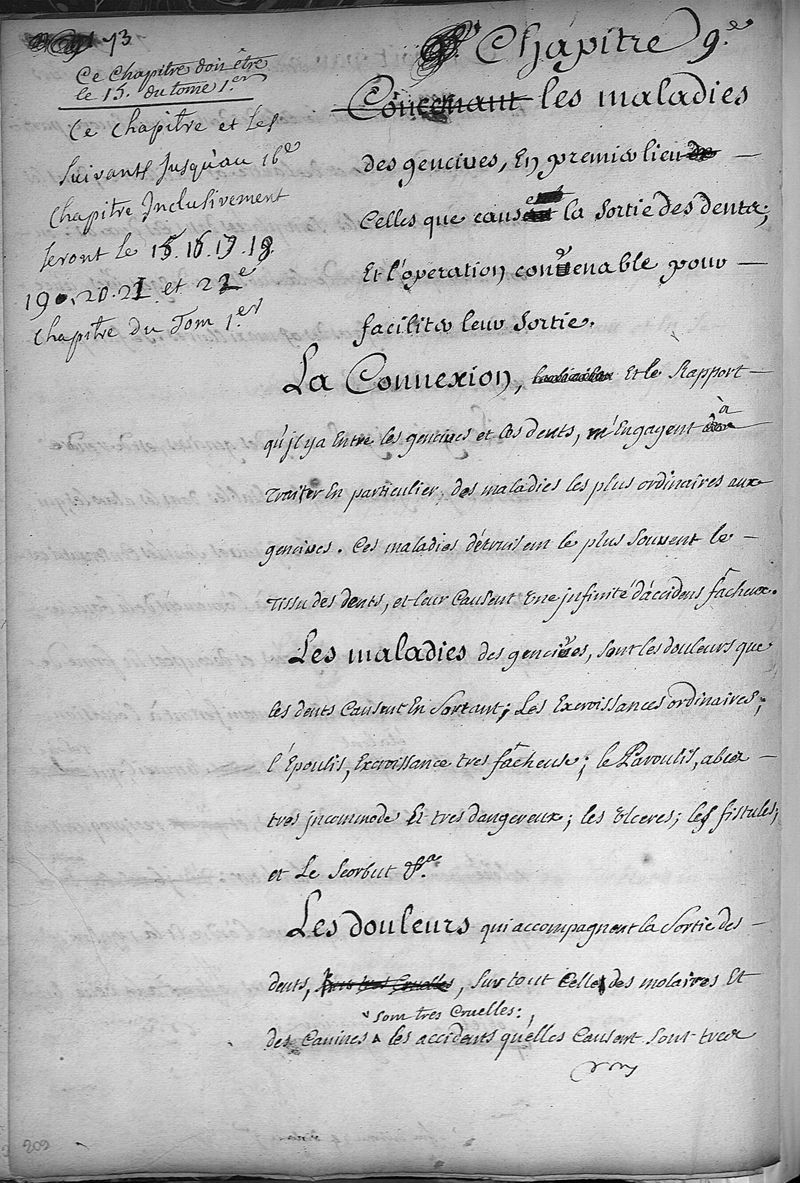 73
Ce Chapitre doit être
le 15. du tome 1.er
Ce Chapitre et les
Suivants Jusqu'au 16e
Chapitre Inclusivement
Seront le 15. 16. 17. 18.
19. 20. 21 et 22e
Chapitre du Tom 1.er
Chapitre 9.e
Concernant les maladies
des gencives, En premier lieu de —
Celles que cause la Sortie des dents;
Et l'operation convenable pour —
faciliter leur Sortie.
La Connexion, Et le Rapport —
qu'jl y a Entre les gencives et les dents, m'Engagent à
Traiter En particulier, des maladies les plus ordinaires aux
gencives. Ces maladies détruisent le plus Souvent le —
Tissu des dents, et leur Causent Une jnfinité d'accidens fâcheux.
Les maladies des gencives, Sont les douleurs que
les dents Causent En Sortant; Les Excroissances ordinaires;
l'Epoulis, Excroissance tres fâcheuse; le Paroulis, abcez —
tres jncommode Et tres dangereux; les Ulceres; les fistules;
et Le Scorbut &.a
Les douleurs qui accompagnent la Sortie des —
dents, sont tres Cruelles, Sur tout Celles des molaires Et
Sont tres Cruelles:;
des Canines les accidents qu'elles Causent Sont trez
209